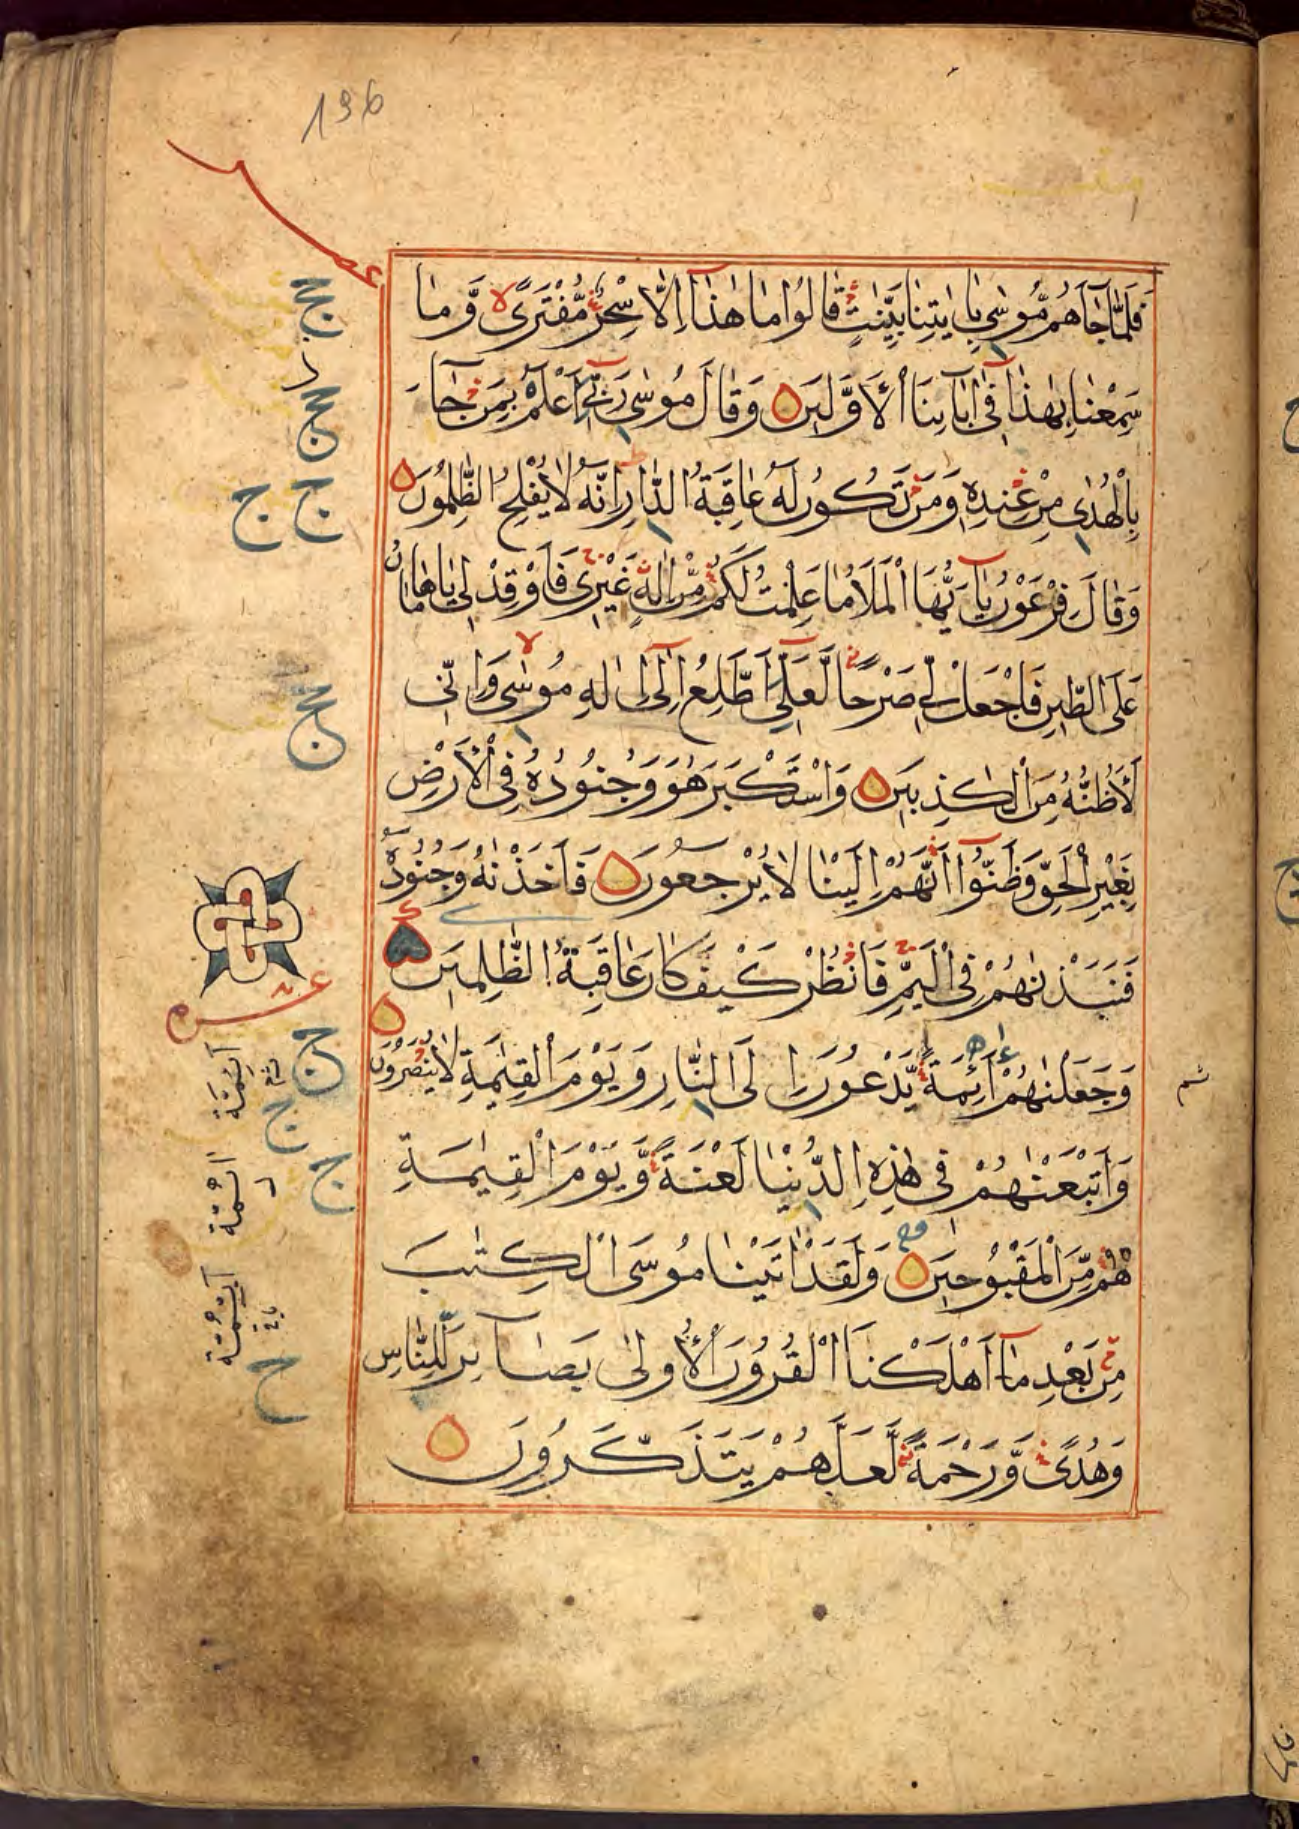 136
فَلَمَّا جَآءَهُم مُّوسٰى بِاٰيٰتِنَا بَيِّنٰتٍ قَالُوا مَا هٰذَآ اِلَّا سِحْرٌ مُّفْتَرًى وَّمَا
سَمِعْنَا بِهٰذَا فِىٓ اٰبَآئِنَا الْاَوَّلِينَ وَقَالَ مُوسٰى رَبِّىٓ اَعْلَمُ بِمَن جَآءَ
بِالْهُدٰى مِنْ عِنْدِهٖ وَمَن تَكُونُ لَهٗ عَاقِبَةُ الدَّارِ اِنَّهٗ لَا يُفْلِحُ الظّٰلِمُونَ
وَقَالَ فِرْعَوْنُ يٰٓاَيُّهَا الْمَلَاُ مَا عَلِمْتُ لَكُم مِّنْ اِلٰهٍ غَيْرِى فَاَوْقِدْ لِى يَا هَامَانُ
عَلَى الطِّينِ فَاجْعَل لِّى صَرْحًا لَّعَلِّىٓ اَطَّلِعُ اِلٰٓى اِلٰهِ مُوسٰى وَاِنِّى
لَاَظُنُّهٗ مِنَ الْكٰذِبِينَ وَاسْتَكْبَرَ هُوَ وَجُنُودُهٗ فِى الْاَرْضِ
بِغَيْرِ الْحَقِّ وَظَنُّوٓا اَنَّهُمْ اِلَيْنَا لَا يُرْجَعُونَ فَاَخَذْنٰهُ وَجُنُودَهٗ
فَنَبَذْنٰهُمْ فِى الْيَمِّ فَانْظُرْ كَيْفَ كَانَ عَاقِبَةُ الظّٰلِمِينَ
وَجَعَلْنٰهُمْ اَئِمَّةً يَّدْعُونَ اِلَى النَّارِ وَيَوْمَ الْقِيٰمَةِ لَا يُنْصَرُونَ
وَاَتْبَعْنٰهُمْ فِى هٰذِهِ الدُّنْيَا لَعْنَةً وَّيَوْمَ الْقِيٰمَةِ
هُم مِّنَ الْمَقْبُوحِينَ وَلَقَدْ اٰتَيْنَا مُوسَى الْكِتٰبَ
مِن بَعْدِ مَآ اَهْلَكْنَا الْقُرُونَ الْاُولٰى بَصَآئِرَ لِلنَّاسِ
وَهُدًى وَّرَحْمَةً لَّعَلَّهُمْ يَتَذَكَّرُونَ